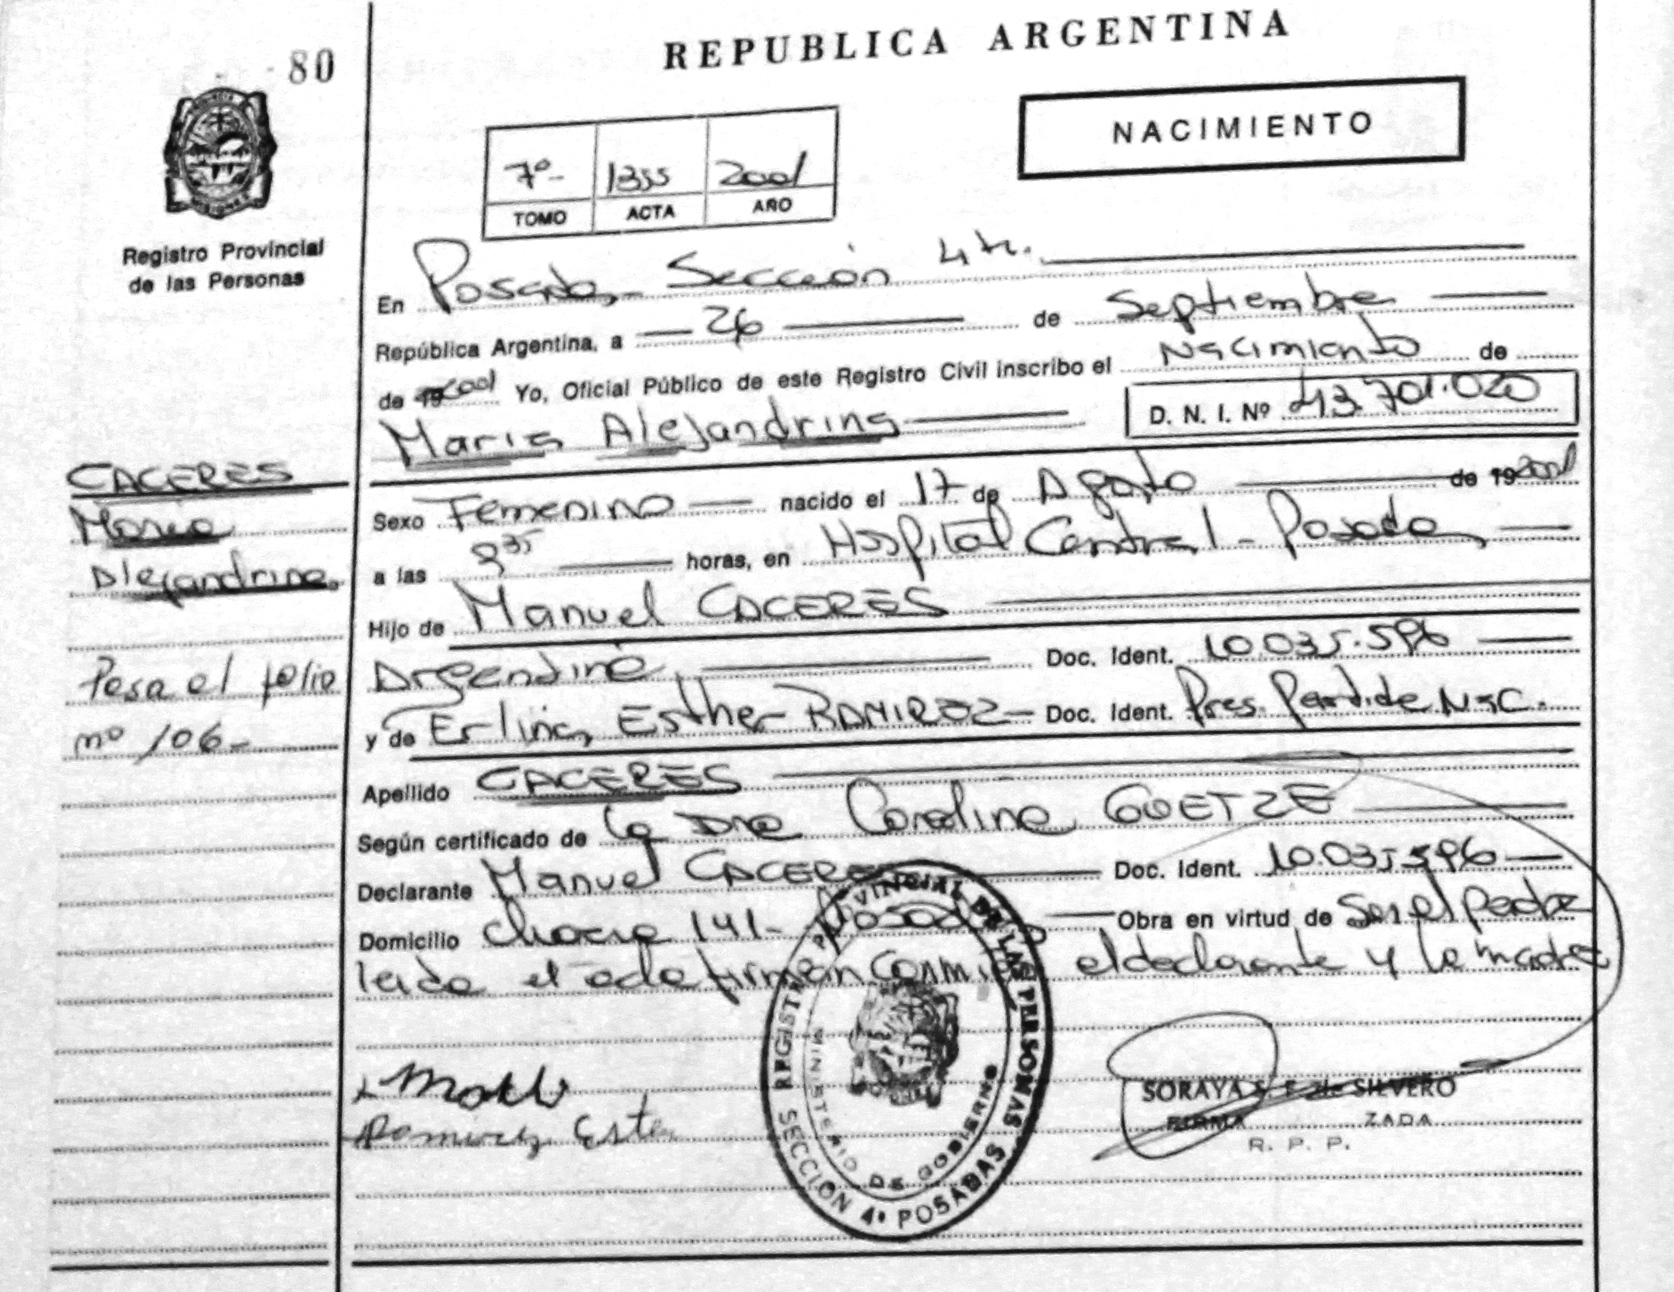 80
REPUBLICA ARGENTINA
NACIMIENTO
7º- 1355 2001
TOMO ACTA AÑO
Registro Provincial
de las Personas
En Posadas - Sección 4ta.
República Argentina, a 26 de Septiembre
de 192001 Yo, Oficial Público de este Registro Civil inscribo el Nacimiento de
D. N. I. Nº 43.701.020
Maria Alejandrina
CACERES
Maria
Alejandrina
Sexo Femenino nacido el 17 de Agosto de 192001
a las 8 35 horas, en Hospital Central - Posadas
Hijo de Manuel CACERES
Argentino Doc. Ident. 10.035.596
Pasa al folio
nº 106-
y de Erlina Esther RAMIREZ - Doc. Ident. Pres. Partida Nac.
Apellido CACERES
Según certificado de la Dra Carolina GOETZE
Declarante Manuel CACERES Doc. Ident. 10.035.596
Domicilio chacra 141- Posadas Obra en virtud de Ser el padre
leida el acta firman conmigo el declarante y la madre
Ramirez Ester
REGISTRO PROVINCIAL DE LAS PERSONAS
MINISTERIO DE GOBIERNO
SECCION 4ª POSADAS
SORAYA de SILVERO
FIRMA ZADA
R. P. P.